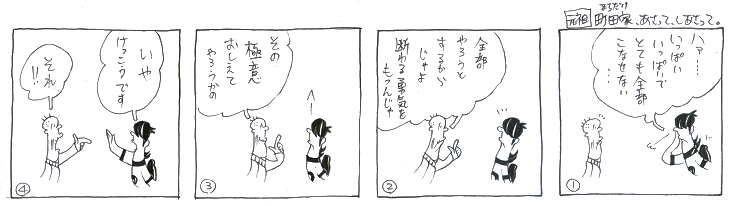 元祖
まるだけ
町田家、あさって、しあさって。
ハァ…
いっぱい
いっぱいで
とても全部
こなせない…
①
全部
やろうと
するから
じゃよ
断わる勇気を
もつんじゃ
②
その
極意
おしえて
やろうかの
③
いや
けっこうです
それ
!!
④